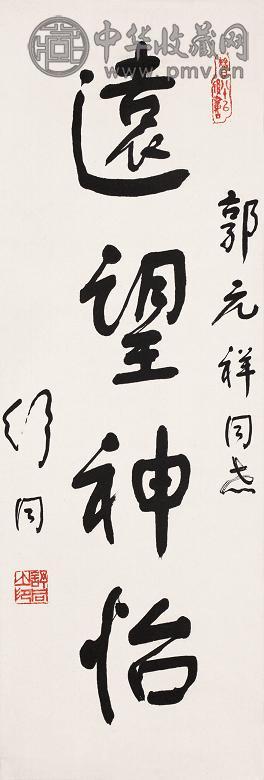 中华收藏网
www.pmv.cn
郭元祥同志
遠望神怡
舒同